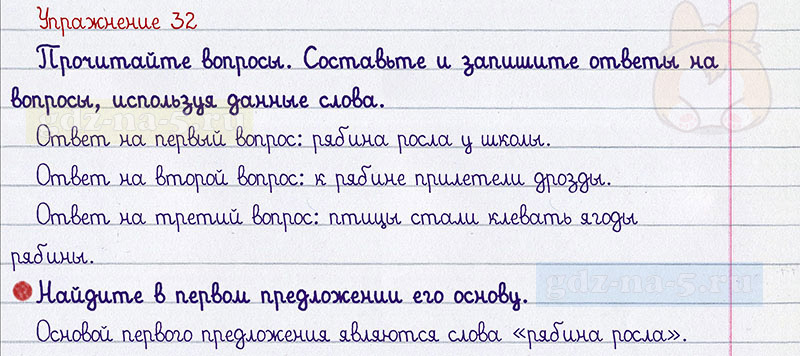 Упражнение 32
Прочитайте вопросы. Составьте и запишите ответы на
вопросы, используя данные слова.
gdz-na-5.ru
Ответ на первый вопрос: рябина росла у школы.
Ответ на второй вопрос: к рябине прилетели дрозды.
Ответ на третий вопрос: птицы стали клевать ягоды
рябины.
gdz-na-5.ru
Найдите в первом предложении его основу.
Основой первого предложения являются слова «рябина росла».